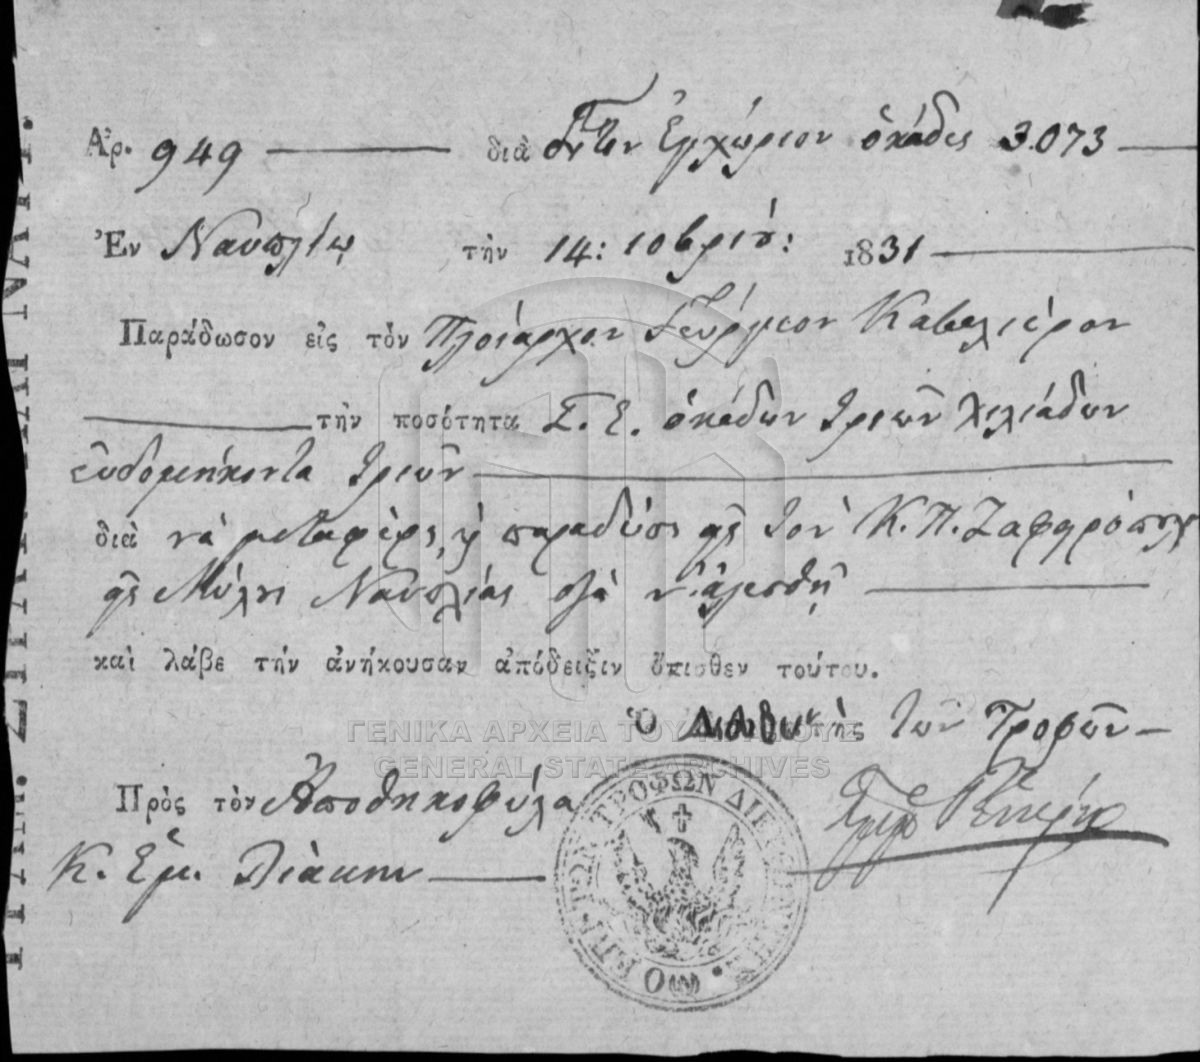 Ἀρ. 949 διὰ σῖτον Ἐγχώριον ὀκάδες 3.073
Ἐν Ναυπλίῳ τὴν 14: 10βρίου: 1831
Παράδωσον εἰς τὸν Πλοίαρχον Γεώργιον Καβαλιέρον
τὴν ποσότητα Σ. Ε. ὀκάδων τριῶν χιλιάδων
ευδομήκοντα τριῶν
διὰ νὰ μεταφέρῃ καὶ παραδώσῃ εἰς τὸν Κ. Π. Ζαφυρόπουλον
εἰς Μύλους Ναυπλίας διὰ ν' ἀλεσθῇ
καὶ λάβε τὴν ἀνήκουσαν ἀπόδειξιν ὄπισθεν τούτου.
Ὁ τῆς τῶν Τροφῶν
Πρὸς τὸν Ἀποθηκοφύλακα
Κ. Ἐμ.
ΓΕΝΙΚΑ ΑΡΧΕΙΑ ΤΟΥ ΚΡΑΤΟΥΣ
GENERAL STATE ARCHIVES